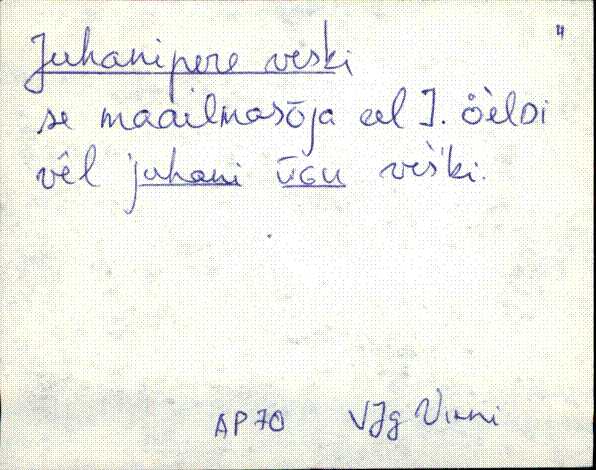 4
Juhanipere veski
se maailmasōja eel J. öèlDi
vêl juhani ūGu veški.
AP 70 VJg Vinni